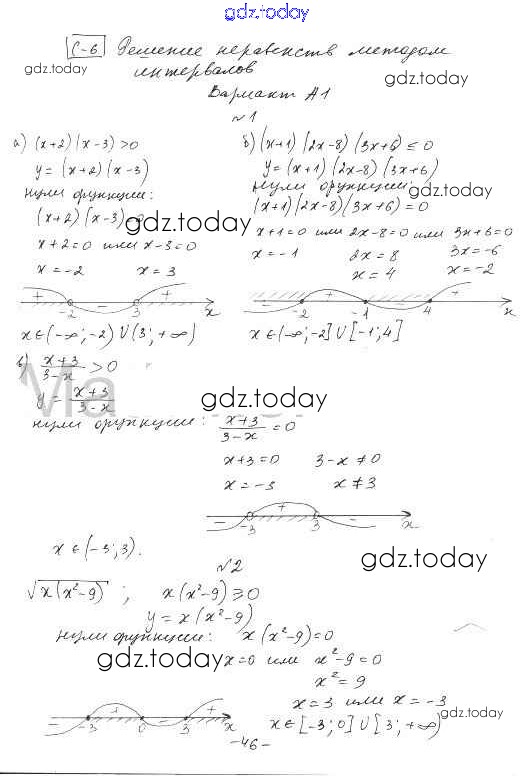 gdz.today
С-6 Решение неравенств методом
gdz.today
интервалов
gdz.today
Вариант А1
№1
а) (x+2)(x-3)>0
y=(x+2)(x-3)
нули функции:
(x+2)(x-3)=0
x+2=0 или x-3=0
x=-2 x=3
+ - +
-2 3 x
x∈(-∞;-2)∪(3;+∞)
б) (x+1)(2x-8)(3x+6)≤0
y=(x+1)(2x-8)(3x+6)
нули функции:
(x+1)(2x-8)(3x+6)=0
gdz.today
x+1=0 или 2x-8=0 или 3x+6=0
x=-1 2x=8 3x=-6
x=4 x=-2
gdz.today
- + - +
-2 -1 4 x
x∈(-∞;-2]∪[-1;4]
в) (x+3)/(3-x)>0
y=(x+3)/(3-x)
gdz.today
нули функции: (x+3)/(3-x)=0
x+3=0 3-x≠0
x=-3 x≠3
- + -
-3 3 x
x∈(-3;3).
gdz.today
№2
√x(x²-9) ; x(x²-9)≥0
y=x(x²-9)
нули функции: x(x²-9)=0
gdz.today
x=0 или x²-9=0
x²=9
x=3 или x=-3
- + - +
-3 0 3 x
gdz.today
x∈[-3;0]∪[3;+∞)
-46-